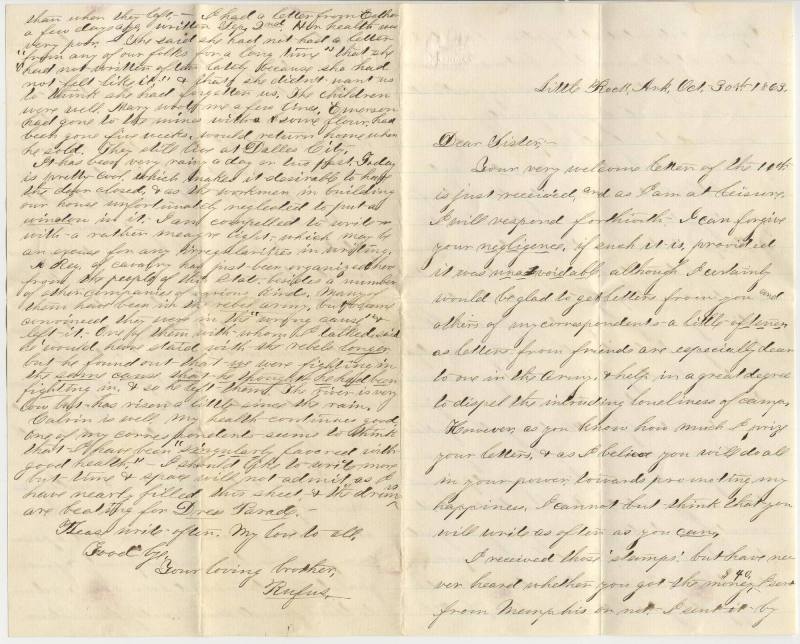 Little Rock, Ark, Oct. 30th 1863.
Dear Sister,—
Your very welcome letter of the 10th
is just received, and as I am at leisure
I will respond forthwith — I can forgive
your negligence, if such it is, provided
it was unavoidable, although I certainly
would be glad to get letters from you and
others of my correspondents a little oftener
as letters from friends are especially dear
to one in the army, & help in a great degree
to dispel the intruding loneliness of camp.
However, as you know how much I prize
your letters, & as I believe you will do all
in your power towards promoting my
happiness, I cannot but think that you
will write as often as you can.
I received those 'stamps' but have ne-
ver heard whether you got the money, $40, I sent
from Memphis or not. I sent it by
than when they left. — I had a letter from
a few days ago, written Sep. 2nd. Her health was
very poor. She said she had not had a letter
from any of our folks for a long time "that she
had not written often lately because she had
not felt like it," & that she didn't want us
to think she had forgotten us. The children
were well. Mary wrote me a few lines. Emerson
had gone to the mines with some flour, had
been gone five weeks, would return home when
he sold. They still live at Dalles City.
It has been very rainy a day or two past. Today
is pretty cool, which makes it desirable to have
the door closed, & as the workmen in building
our house unfortunately neglected to put a
window in it, I am compelled to write
with a rather meagre light, which may be
an excuse for any irregularities in writing.
A Reg. of cavalry has just been organized here
from the people of this State, besides a number
of other companies of various kinds. Many of
them have been in the rebel army, but became
convinced they were in the "wrong cause" &
left it. One of them with whom I talked said
he would have staid with the rebels longer
but he found out that we were fighting in
the same cause that he thought he had been
fighting in, & so he left them. The river is very
low but has risen a little since the rain.
Calvin is well. My health continues good,
one of my correspondents seems to think
that I have been "singularly favored with
good health." — I should like to write more
but time & space will not admit, as I
have nearly filled this sheet, & the drums
are beating for Dress Parade. —
Please write often. My love to all.
Good bye,
Your loving brother,
Rufus.